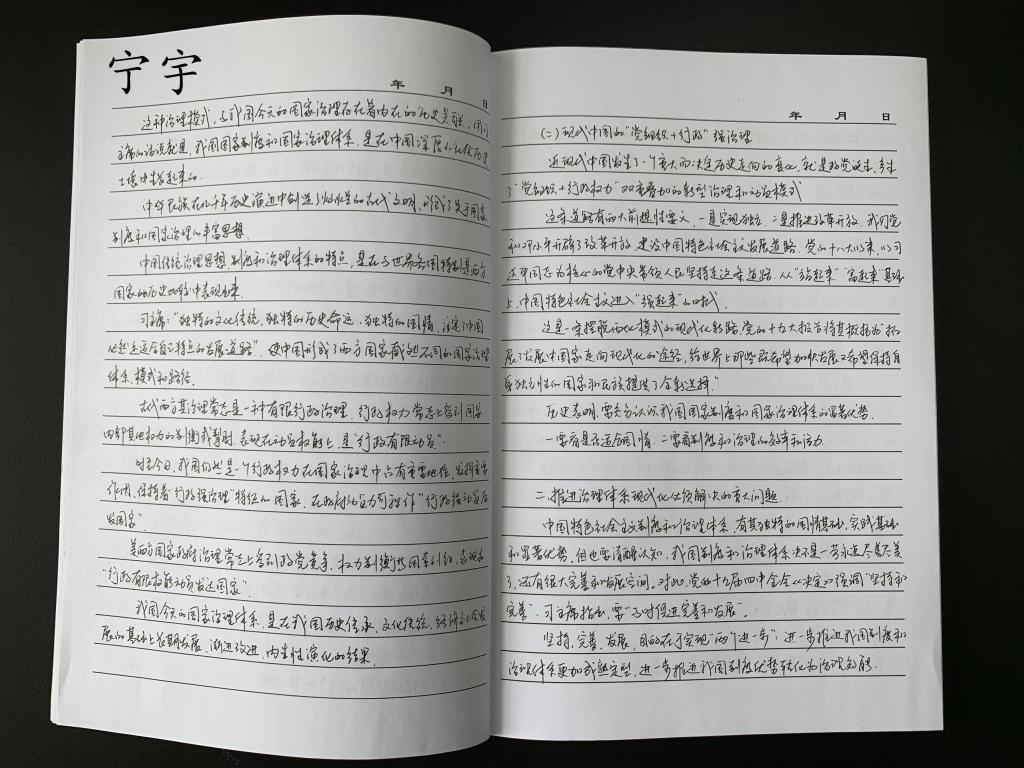 宁宇
年 月 日
这种治理模式,与我国今天的国家治理存在着内在的历史关联,用习
主席的话说就是,我国国家制度和国家治理体系,是在中国深厚的社会历史
土壤中生长起来的.
中华民族在几千年历史演进中创造了灿烂的古代文明,形成了关于国家
制度和国家治理的丰富思想.
中国传统治理思想、制度和治理体系的特点,是在与世界各国特别是西方
国家的历史比较中表现出来.
习主席:"独特的文化传统,独特的历史命运,独特的国情,注定了中国
必然走适合自己特点的发展道路".使中国形成了西方国家截然不同的国家治理
体系、模式和路径.
古代西方其治理常态是一种有限行政治理.行政权力常态上受到国家
内部其他权力的制衡或掣肘.表现在动员权能上,是"行政有限动员".
时至今日,我国仍然是一个行政权力在国家治理中占有重要地位,发挥重要
作用,保持着"行政强治理"特征的国家,在政府动员力可称作"行政强动员后
发国家"
美西方国家政府治理常态上受到政党竞争、权力制衡等因素制约,表现为
"行政有限权能动员发达国家"
我国今天的国家治理体系,是在我国历史传承、文化传统、经济社会发
展的基础上长期发展、渐进改进、内生性演化的结果.
年 月 日
(二)现代中国的"党组织+行政"强治理
近现代中国发生了一个重大而决定历史走向的变化,就是政党诞生,产生
了"党组织+行政权力"双重叠加的新型治理和动员模式
这条道路有两大前提性要义,一是实现独立,二是推进改革开放.我们党
和邓小平开辟了改革开放、建设中国特色社会主义发展道路.党的十八大以来,以习
近平同志为核心的党中央带领人民坚持走这条道路.从"站起来""富起来"基础
上,中国特色社会主义进入"强起来"的时代.
这是一条摆脱西化模式的现代化新路,党的十九大报告将其概括为"拓
展了发展中国家走向现代化的途径,给世界上那些既希望加快发展又希望保持自
身独立性的国家和民族提供了全新选择."
历史表明,需充分认识我国国家制度和国家治理体系的显著优势.
一要看是否适合国情、二要看制度和治理的效率和活力.
二、推进治理体系现代化必须解决的重大问题.
中国特色社会主义制度和治理体系,有其独特的国情基础、实践基础
和显著优势,但也要清醒认知,我国制度和治理体系决不是一劳永逸尽善尽美
了,还有很大完善和发展空间.对此,党的十九届四中全会《决定》强调"坚持和
完善".习主席指出,需"与时俱进完善和发展".
坚持、完善、发展,目的在于实现"两个进一步":进一步推进我国制度和
治理体系更加成熟定型,进一步推进我国制度优势转化为治理效能.